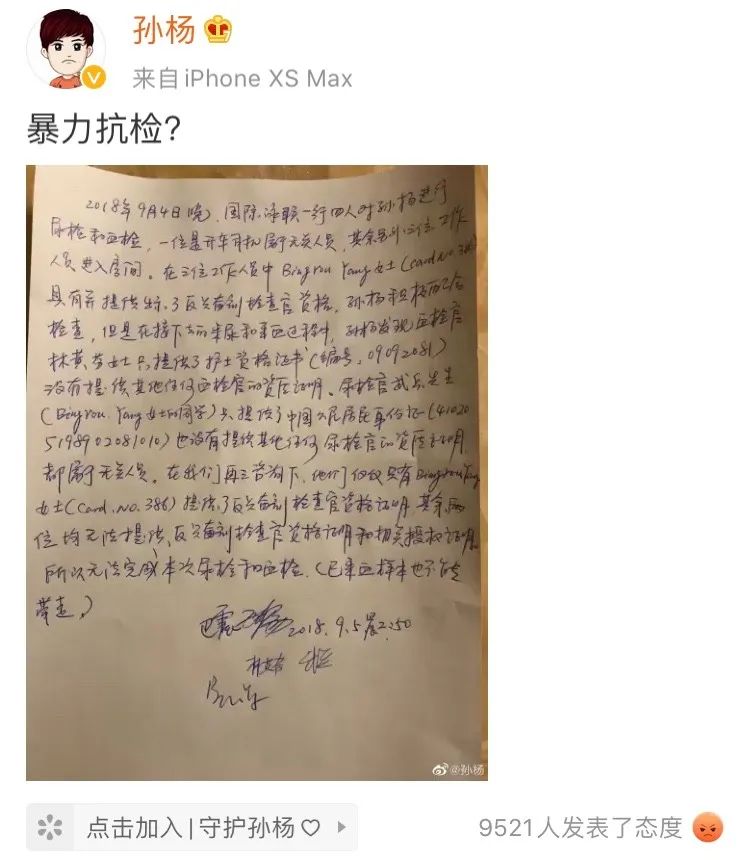 孙杨
来自 iPhone XS Max
暴力抗检?
2018年9月4日晚，国际泳联一行四人对孙杨进行
尿检和血检，一位是开车司机属于无关人员，其余另外三位工作
人员进入房间。在三位工作人员中 Bingrou Yang女士(card no. 386)
具有并提供出示了反兴奋剂检查官资格，孙杨积极配合
检查，但是在接下去的采尿和采血过程中，孙杨发现血检官
女士只提供了护士资格证书(编号：09092081)
没有提供其他任何血检官的资历证明。尿检官 先生
(Bingrou. Yang女士的同学)只提供了中国公民居民身份证
也没有提供其他任何尿检官的资历证明
都属于无关人员。在我们再三咨询下，他们仅仅只有Bingrou Yang
女士(Card. no. 386)提供了反兴奋剂检查官资格证明，其余两
位均无法提供反兴奋剂检查官资格证明和相关授权证明。
所以无法完成本次尿检和血检。(已采血样本也不能
带走)
2018. 9.5晨2:50
@孙杨
点击加入 | 守护孙杨♡
9521人发表了态度